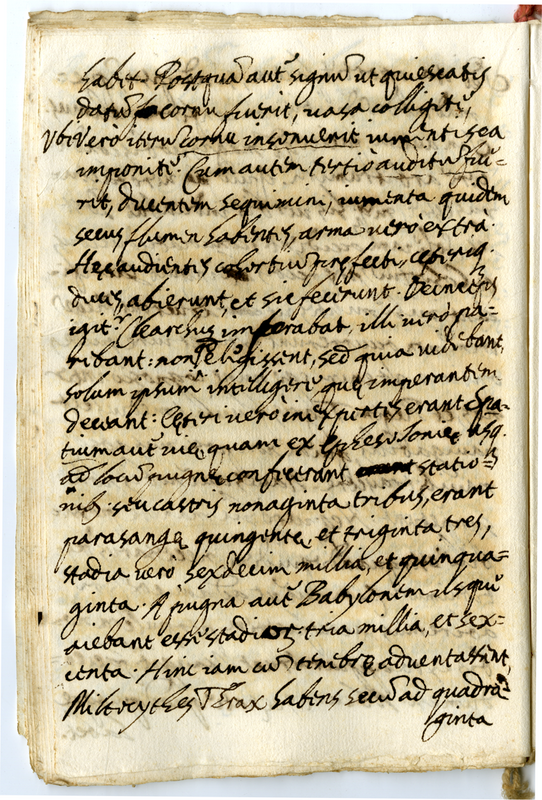 habet. Postquā aut̃ signū ut quiescatis
datū cornu fuerit, vasa colligite,
Vbi Vero iterū cornu insonuerit iumentis ea
imponite. Cum autem tertiò auditū fue=
rit, ducentem sequimini, iumenta quidem
secus flumen habentes, arma verò extrà.
Hęc audientes cohortiū pręfecti, cęteriq.
duces, abierunt, et sic fecerunt. Deinceps
igit.r Clearchus imperabat, illi verò pa=
rebant: non elegissent, sed quia videbant,
solum ipsum intelligere quę imperantem
deceant: Cęteri verò inexpertes erant Spa=
tium aut̃ vię, quam ex Epheso Ionię usq.
ad locū pugnę confecerant statio=
nib. seu castris nonaginta tribus, erant
parasangę quingentę, et triginta tres,
stadia verò sexdecim millia, et quinqua=
ginta. A pugna aut̃ Babylonem usque
aiebant esse stadia tria millia, et sex=
centa. Hinc iam cū tenebrę adventassent,
Miltocythes Thrax habens secū ad quadra=
ginta